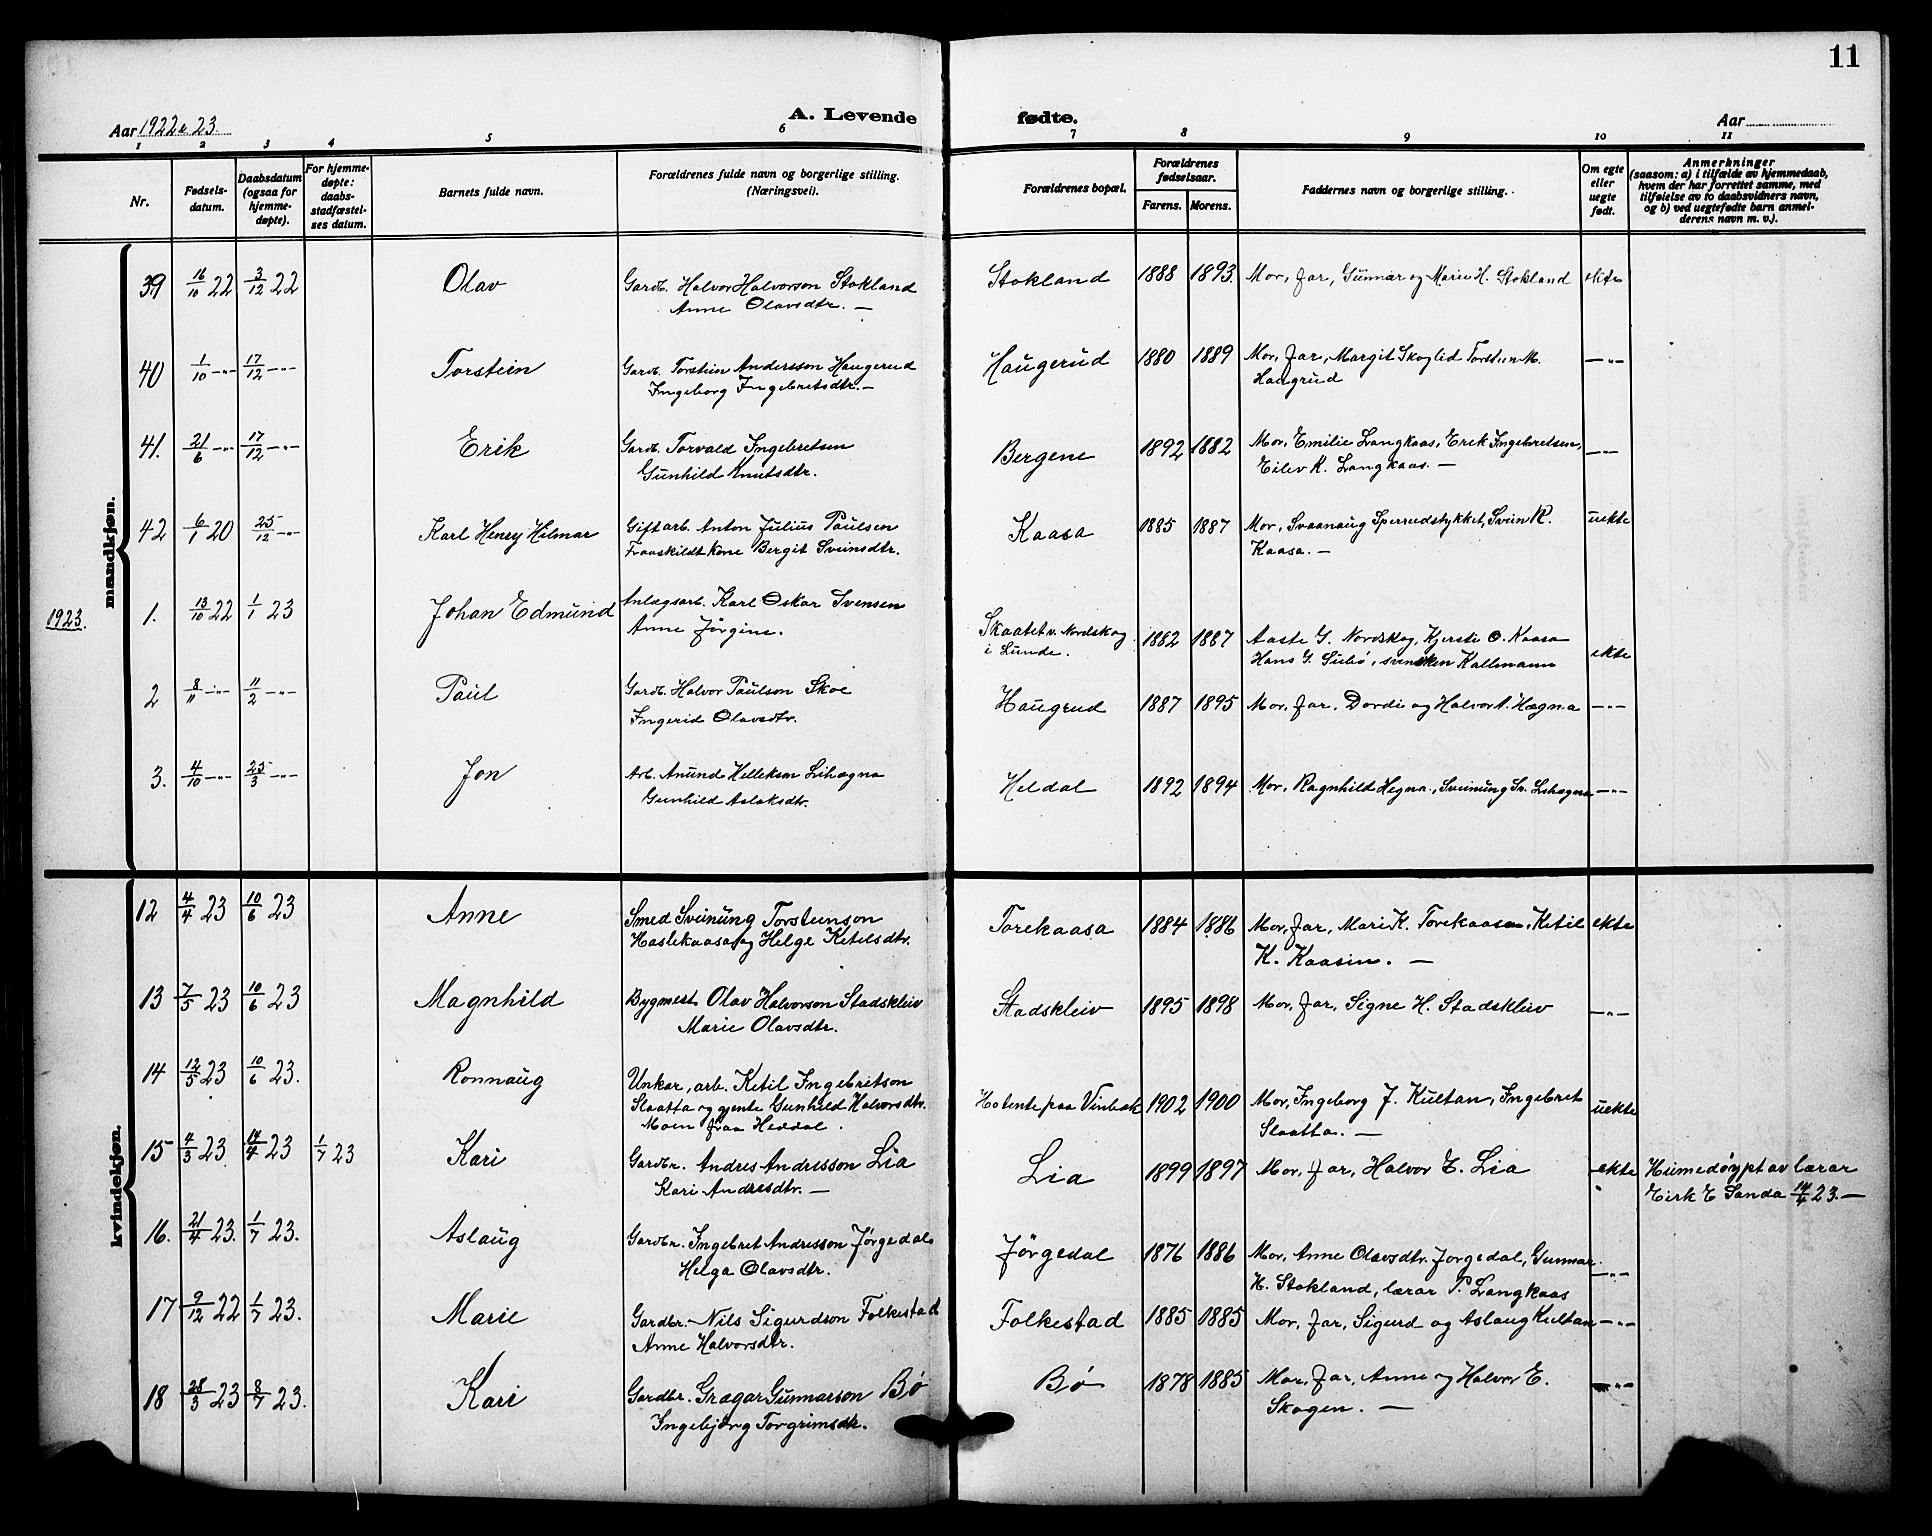 11
Aar 1922 & 23.
A. Levende fødte.
Aar
1 2 3 4 5 6 7 8 9 10 11
Nr.
Fødsels-
datum.
Daabsdatum
(ogsaa for
hjemme-
døpte).
For hjemme-
døpte:
daabs-
stadfæstel-
ses datum.
Barnets fulde navn.
Forældrenes fulde navn og borgerlige stilling.
(Næringsvei).
Forældrenes bopæl.
Forældrenes
fødselsaar.
Farens. Morens.
Faddernes navn og borgerlige stilling.
Om egte
eller
uegte
født.
Anmerkninger
(saasom: a) i tilfælde av hjemmedaab,
hvem der har forrettet samme, med
tilføielse av to daabsvidners navn,
og b) ved uegtefødte barn anmel-
derens navn m. v.).
mandkjøn.
39 16/10 22 3/12 22 Olav Gardb. Halvor Halvorson Stokland Stokland 1888 1893. Mor, far, Gunnar og Marie H. Stokland ekte
Anne Olavsdtr. —
40 1/10 -"- 17/12 -"- Torstein Gardb. Torstein Andersson Haugerud Haugerud 1880 1889 Mor, far, Margit Skoglid Torstein M. -"-
Ingeborg Ingebretsdtr. — Haugrud
41. 21/6 -"- 17/12 -"- Erik Gardb. Torvald Ingebretsen Bergene 1892 1882 Mor, Emilie Langkaas, Erik Ingebretsen, -"-
Gunhild Knutsdtr. Eilev K. Langkaas. —
42 6/1 20 25/12 -"- Karl Henry Hilmar Gift arb. Anton Julius Paulsen Kaasa 1885 1887 Mor, Svaanaug Sperrudstykket, Svein K. uekte
Fraaskildt kone Bergit Sveinsdtr. Kaasa. —
1923.
1. 13/10 22 1/1 23 Johan Edmund Anlægsarb. Karl Oskar Svensen Skaatet v. Nordskog 1882 1887 Aaste G. Nordskog, Kjersti O. Kaasa
Anne Jørgine. i Lunde. Hans G. Sulebø, svensken Kallmann ekte
2 8/11 -"- 11/2 -"- Paul Gardb. Halvor Paulson Skoe Haugrud 1887 1895 Mor, far, Dordi og Halvor A. Hægna -"-
Ingerid Olavsdtr.
3. 4/10 -"- 25/3 -"- Jon Arb. Anund Hellekson Lihægna Heldal 1892 1894 Mor, Ragnhild Hegna, Sveinung Sr. Lihægna -"-
Gunhild Aslaksdtr.
kvindekjøn.
12 4/4 23 10/6 23 Anne Smed Sveinung Torsteinson Torekaasa 1884 1886 Mor, far, Mari K. Torekaasa, Ketil ekte
Haslekaasa og Helge Ketelsdtr. K. Kaasin. —
13 7/5 23 10/6 23 Magnhild Bygmest. Olav Halvorson Stadskleiv Stadskleiv 1895 1898 Mor, far, Signe H. Stadskleiv -"-
Marie Olavsdtr.
14 12/5 23 10/6 23. Ronnaug Unkar, arb. Ketil Ingebretson Hotente paa Vinbek 1902 1900 Mor, Ingeborg J. Kultan, Ingebret uekte
Slaatta og gjente Gunhild Halvorsdtr. Slaatta. —
Moen fraa Heddal.
15 4/3 23 14/4 23 1/7 23 Kari Gardbr. Andres Andresson Lia Lia 1899 1897 Mor, far, Halvor E. Lia ekte Heimedøypt av lærar
Kari Andresdtr. — Eirk E Sanda 14/4 23. —
16. 21/4 23. 1/7 23. Aslaug Gardbr. Ingebret Andresson Jørgedal Jørgedal 1876 1886 Mor, Anne Olavsdtr Jorgedal, Gunnar -"-
Helga Olavsdtr. H. Stokland, lærar P. Langkaas
17 9/12 22 1/7 23. Marie Gardbr. Nils Sigurdson Folkestad Folkestad 1885 1885 Mor, far, Sigurd og Aslaug Kultan -"-
Anne Halvorsdtr.
18 28/3 23 8/7 23. Kari Gardbr. Gragar Gunnarson Bø Bø 1878 1885 Mor, far, Anne og Halvor E. -"-
Ingebjørg Torgrimsdtr. Skogen. —